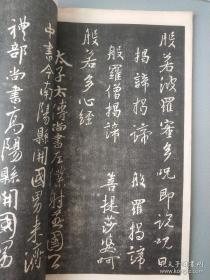 般若波羅蜜多咒即說咒曰
揭諦揭諦 般羅揭諦
般羅僧揭諦 菩提莎婆呵
般若多心經
太子太傅尚書左僕射燕國公
中書令南陽縣開國男來濟
禮部尚書高陽縣開國男